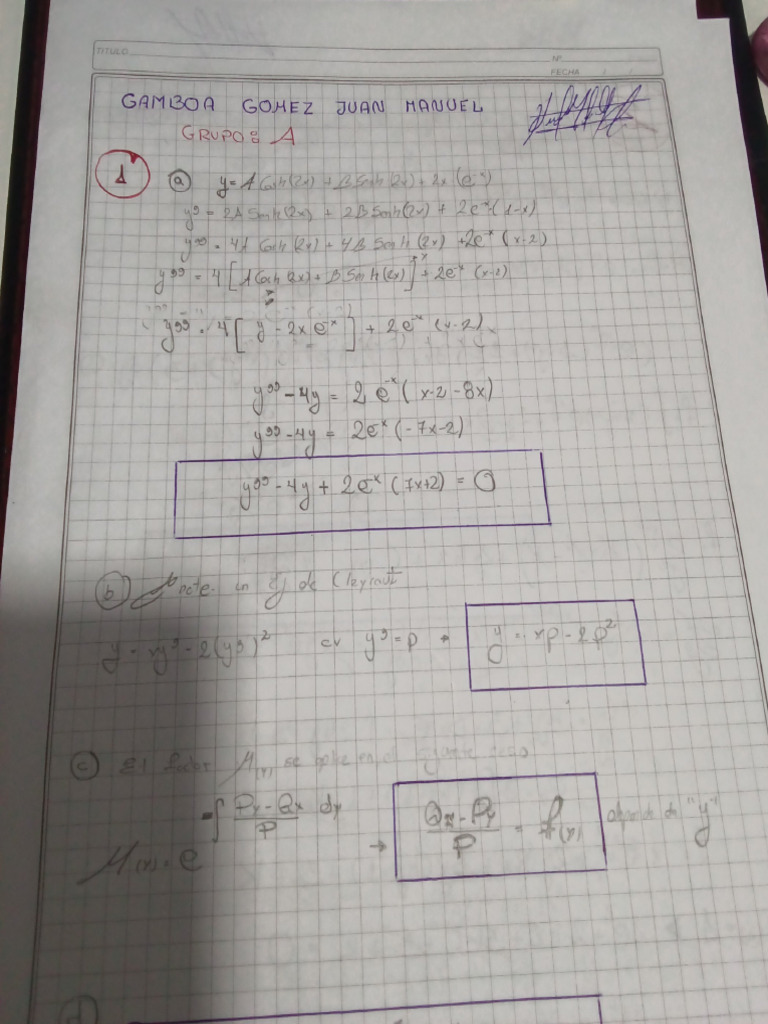 TITULO
Nº
FECHA
GAMBOA GOMEZ JUAN MANUEL
GRUPO: A
1 a) y = A Cosh(2x) + B Senh(2x) + 2x(e^-x)
y'= 2A Senh(2x) + 2B Senh(2x) + 2e^-x(1-x)
y'' = 4A Cosh(2x) + 4B Senh(2x) + 2e^-x (x-2)
y'' = 4[A Cosh(2x) + B Senh(2x)] + 2e^-x (x-2)
y'' = 4[y - 2x e^-x] + 2e^-x (x-2)
y'' - 4y = 2e^-x (x-2-8x)
y'' - 4y = 2e^-x (-7x-2)
y'' - 4y + 2e^-x (7x+2) = 0
b) de Clayraut
y = xy' - 2(y')^2 y' = p y = xp - 2p^2
c) El factor se
= ∫ Py - Qx / P dy
e → Qx - Py / P = "y"
d